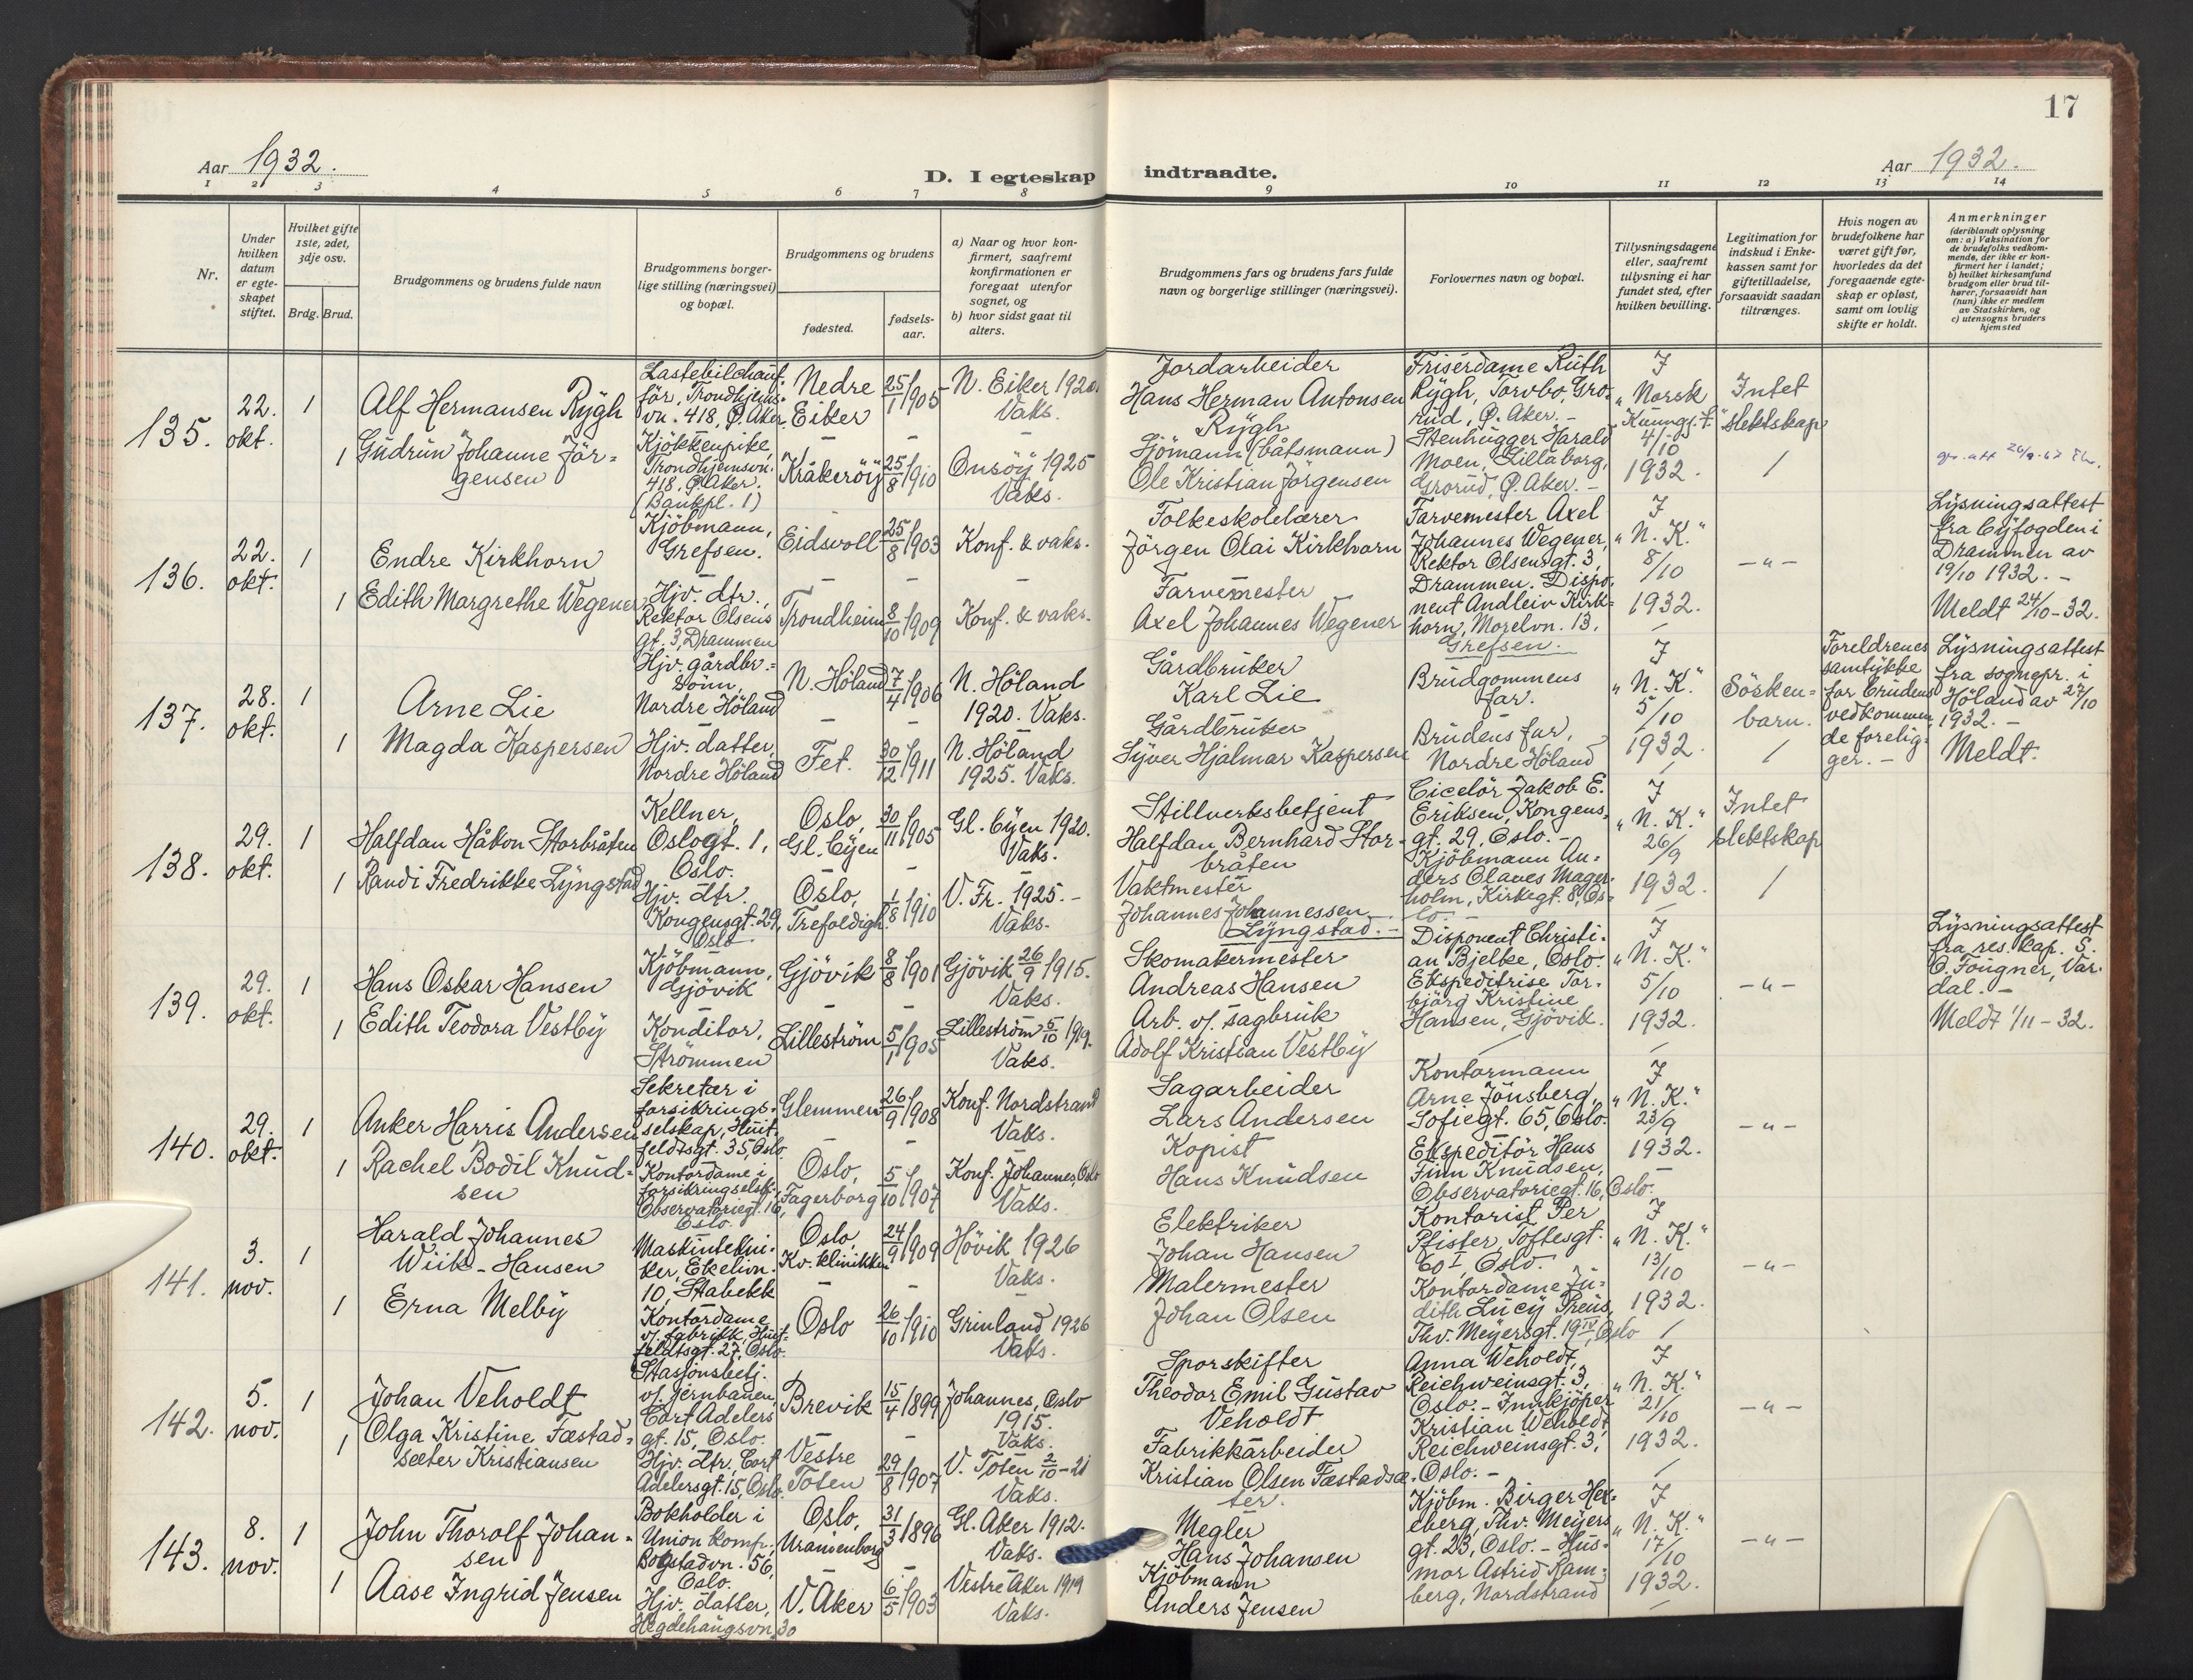 17
Aar 1932.
D. I egteskap indtraadte.
Aar 1932.
1 2 3 4 5 6 7 8 9 10 11 12 13 14
Nr.
Under hvilken datum er egteskapet stiftet.
Hvilket gifte 1ste, 2det, 3dje osv.
Brdg. Brud.
Brudgommens og brudens fulde navn
Brudgommens borgerlige stilling (næringsvei) og bopæl.
Brudgommens og brudens
fødested.
fødselsaar.
a) Naar og hvor konfirmert, saafremt konfirmationen er foregaat utenfor sognet, og
b) hvor sidst gaat til alters.
Brudgommens fars og brudens fars fulde navn og borgerlige stillinger (næringsvei).
Forlovernes navn og bopæl.
Tillysningsdagene eller, saafremt tillysning ei har fundet sted, efter hvilken bevilling.
Legitimation for indskud i Enkekassen samt for giftetilladelse, forsaavidt saadan tiltrænges.
Hvis nogen av brudefolkene har været gift før, hvorledes da det foregaaende egteskap er opløst, samt om lovlig skifte er holdt.
Anmerkninger
(deriblandt oplysning om: a) Vaksination for de brudefolks vedkommende, der ikke er konfirmert her i landet;
b) hvilket kirkesamfund brudgom eller brud tilhører, forsaavidt han (hun) ikke er medlem av Statskirken, og
c) utensogns bruders hjemsted
135. 22. okt. 1
Alf Hermansen Rygh
Lastebilchauffør, Trondhjemsvn. 418, Ø. Aker.
Nedre Eiker
25/1 1905
N. Eiker 1920. Vaks.
Jordarbeider
Hans Herman Antonsen Rygh
Friserdame Ruth Rygh, Torvbo, Grorud, Ø. Aker. -
I "Norsk Kunngj.t." 4/10 1932.
Intet slektskap
1 Gudrun Johanne Jörgensen
Kjökkenpike, Trondhjemsvn. 418, Ø. Aker. (Bankpl. 1)
Kråkeröy
25/8 1910
Onsöy 1925 Vaks.
Sjömann (båtsmann)
Ole Kristian Jörgensen
Stenhugger Harald Moen, Lillaborg, Grorud, Ø. Aker. -
136. 22. okt. 1
Endre Kirkhorn
Kjöbmann, Grefsen.
Eidsvoll
25/8 1903
Konf. & vaks.
Folkeskolelærer
Jörgen Olai Kirkhorn
Farvemester Axel Johannes Wegener, Rektor Olsensgt. 3, Drammen. Disponent Andleiv Kirkhorn, Morelvn. 13, Grefsen.
I "N. K." 8/10 1932.
-"-
Lysningsattest fra byfogden i Drammen av 19/10 1932. -
Meldt 24/10-32.
1 Edith Margrethe Wegener
Hjv. dtr., Rektor Olsens gt. 3, Drammen
Trondheim
8/10 1909
Konf. & vaks.
Farvemester
Axel Johannes Wegener
137. 28. okt. 1
Arne Lie
Hjv. gårdbr. sönn, Nordre Höland
N. Höland
7/4 1906
N. Höland 1920. Vaks.
Gårdbruker
Karl Lie
Brudgommens far.
I "N. K." 5/10 1932.
Sösken=barn.
Foreldrenes samtykke for brudens vedkommende foreligger. -
Lysningsattest fra sognepr. i Höland av 27/10 1932. -
Meldt.
1 Magda Kaspersen
Hjv. datter, Nordre Höland
Fet.
30/12 1911
N. Höland 1925. Vaks.
Gårdbruker
Syver Hjalmar Kaspersen
Brudens far, Nordre Höland
138. 29. okt. 1
Halfdan Håkon Storbråten
Kellner, Oslogt. 1, Oslo.
Oslo, Gl. byen
30/11 1905
Gl. byen 1920. Vaks.
Stillverksbetjent
Halfdan Bernhard Storbråten
Ciselör Jakob E. Eriksen, Kongensgt. 29, Oslo. -
I "N. K." 26/9 1932.
Intet slektskap
1 Randi Fredrikke Lyngstad
Hjv. dtr. Kongensgt. 29, Oslo
Oslo, Trefoldigh.
1/8 1910
V. Fr. 1925. - Vaks.
Vaktmester
Johannes Johannessen Lyngstad. -
Kjöbmann Anders Olaves Magerholm, Kirkegt. 8, Oslo. -
139. 29. okt. 1
Hans Oskar Hansen
Kjöbmann, Gjövik
Gjövik
8/8 1901
Gjövik 26/9 1915. Vaks.
Skomakermester
Andreas Hansen
Disponent Christian Bjelke, Oslo.
Ekspeditrise Torbjörg Kristine Hansen, Gjövik.
I "N. K." 5/10 1932.
-"-
Lysningsattest fra res. kap. S. O. Fougner, Vardal. -
Meldt 1/11-32.
1 Edith Teodora Vestby
Konditor, Strömmen
Lilleström
5/1 1905
Lilleström 5/10 1919. Vaks.
Arb. v/ sagbruk
Adolf Kristian Vestby
140. 29. okt. 1
Anker Harris Andersen
Sekretær i forsikringsselskap, Huitfeldtsgt. 35, Oslo.
Glemmen
26/9 1908
Konf. Nordstrand Vaks.
Sagarbeider
Lars Andersen
Kontormann Arne Jönsberg, Sofiegt. 65, Oslo.
I "N. K." 23/9 1932.
-"-
1 Rachel Bodil Knudsen
Kontordame i forsikringselsk., Observatoriegt. 16, Oslo.
Oslo, Fagerborg
5/10 1907
Konf. Johannes, Oslo Vaks.
Kopist
Hans Knudsen
Ekspeditör Hans Finn Knudsen, Observatoriegt. 16, Oslo. -
141. 3. nov. 1
Harald Johannes Wiik-Hansen
Maskintekniker, Ekelivn. 10, Stabekk
Oslo, Kv. klinikken
24/9 1909
Hövik 1926 Vaks.
Elektriker
Johan Hansen
Kontorist Per Pfister, Toftesgt. 60 I, Oslo.
I "N. K." 13/10 1932.
-"-
1 Erna Melby
Kontordame v/ fabrikk, Huitfeldtsgt. 27, Oslo.
Oslo
26/10 1910
Grinland 1926 Vaks.
Malermester
Johan Olsen
Kontordame Judith Lucy Preus, Thv. Meyersgt. 19 IV, Oslo
142. 5. nov. 1
Johan Veholdt
Stasjonsbetj. v/ jernbanen, Cort Adelers gt. 15, Oslo.
Brevik
15/4 1899
Johannes, Oslo 1915. Vaks.
Sporskifter
Theodor Emil Gustav Veholdt
Anna Weholdt, Reichweinsgt. 3, Oslo. - Innkjöper Kristian Weholdt, Reichweinsgt. 3, Oslo. -
I "N. K." 21/10 1932.
-"-
1 Olga Kristine Fæstadsæter Kristiansen
Hjv. dtr., Cort Adelersgt. 15, Oslo.
Vestre Toten
29/8 1907
V. Toten 2/10-21 Vaks.
Fabrikkarbeider
Kristian Olsen Fæstadsæter.
143. 8. nov. 1
John Thorolf Johansen
Bokholder i Union komp., Bogstadvn. 56, Oslo.
Oslo, Uranienborg
31/3 1896
Gl. Aker 1912. Vaks.
Megler
Hans Johansen
Kjöbm. Birger Hekeberg, Thv. Meyers gt. 23, Oslo. - Husmor Astrid Ramberg, Nordstrand
I "N. K." 17/10 1932.
-"-
1 Aase Ingrid Jensen
Hjv. datter, Hegdehaugsvn. 30
V. Aker
6/5 1903
Vestre Aker 1919 Vaks.
Kjöbmann
Anders Jensen